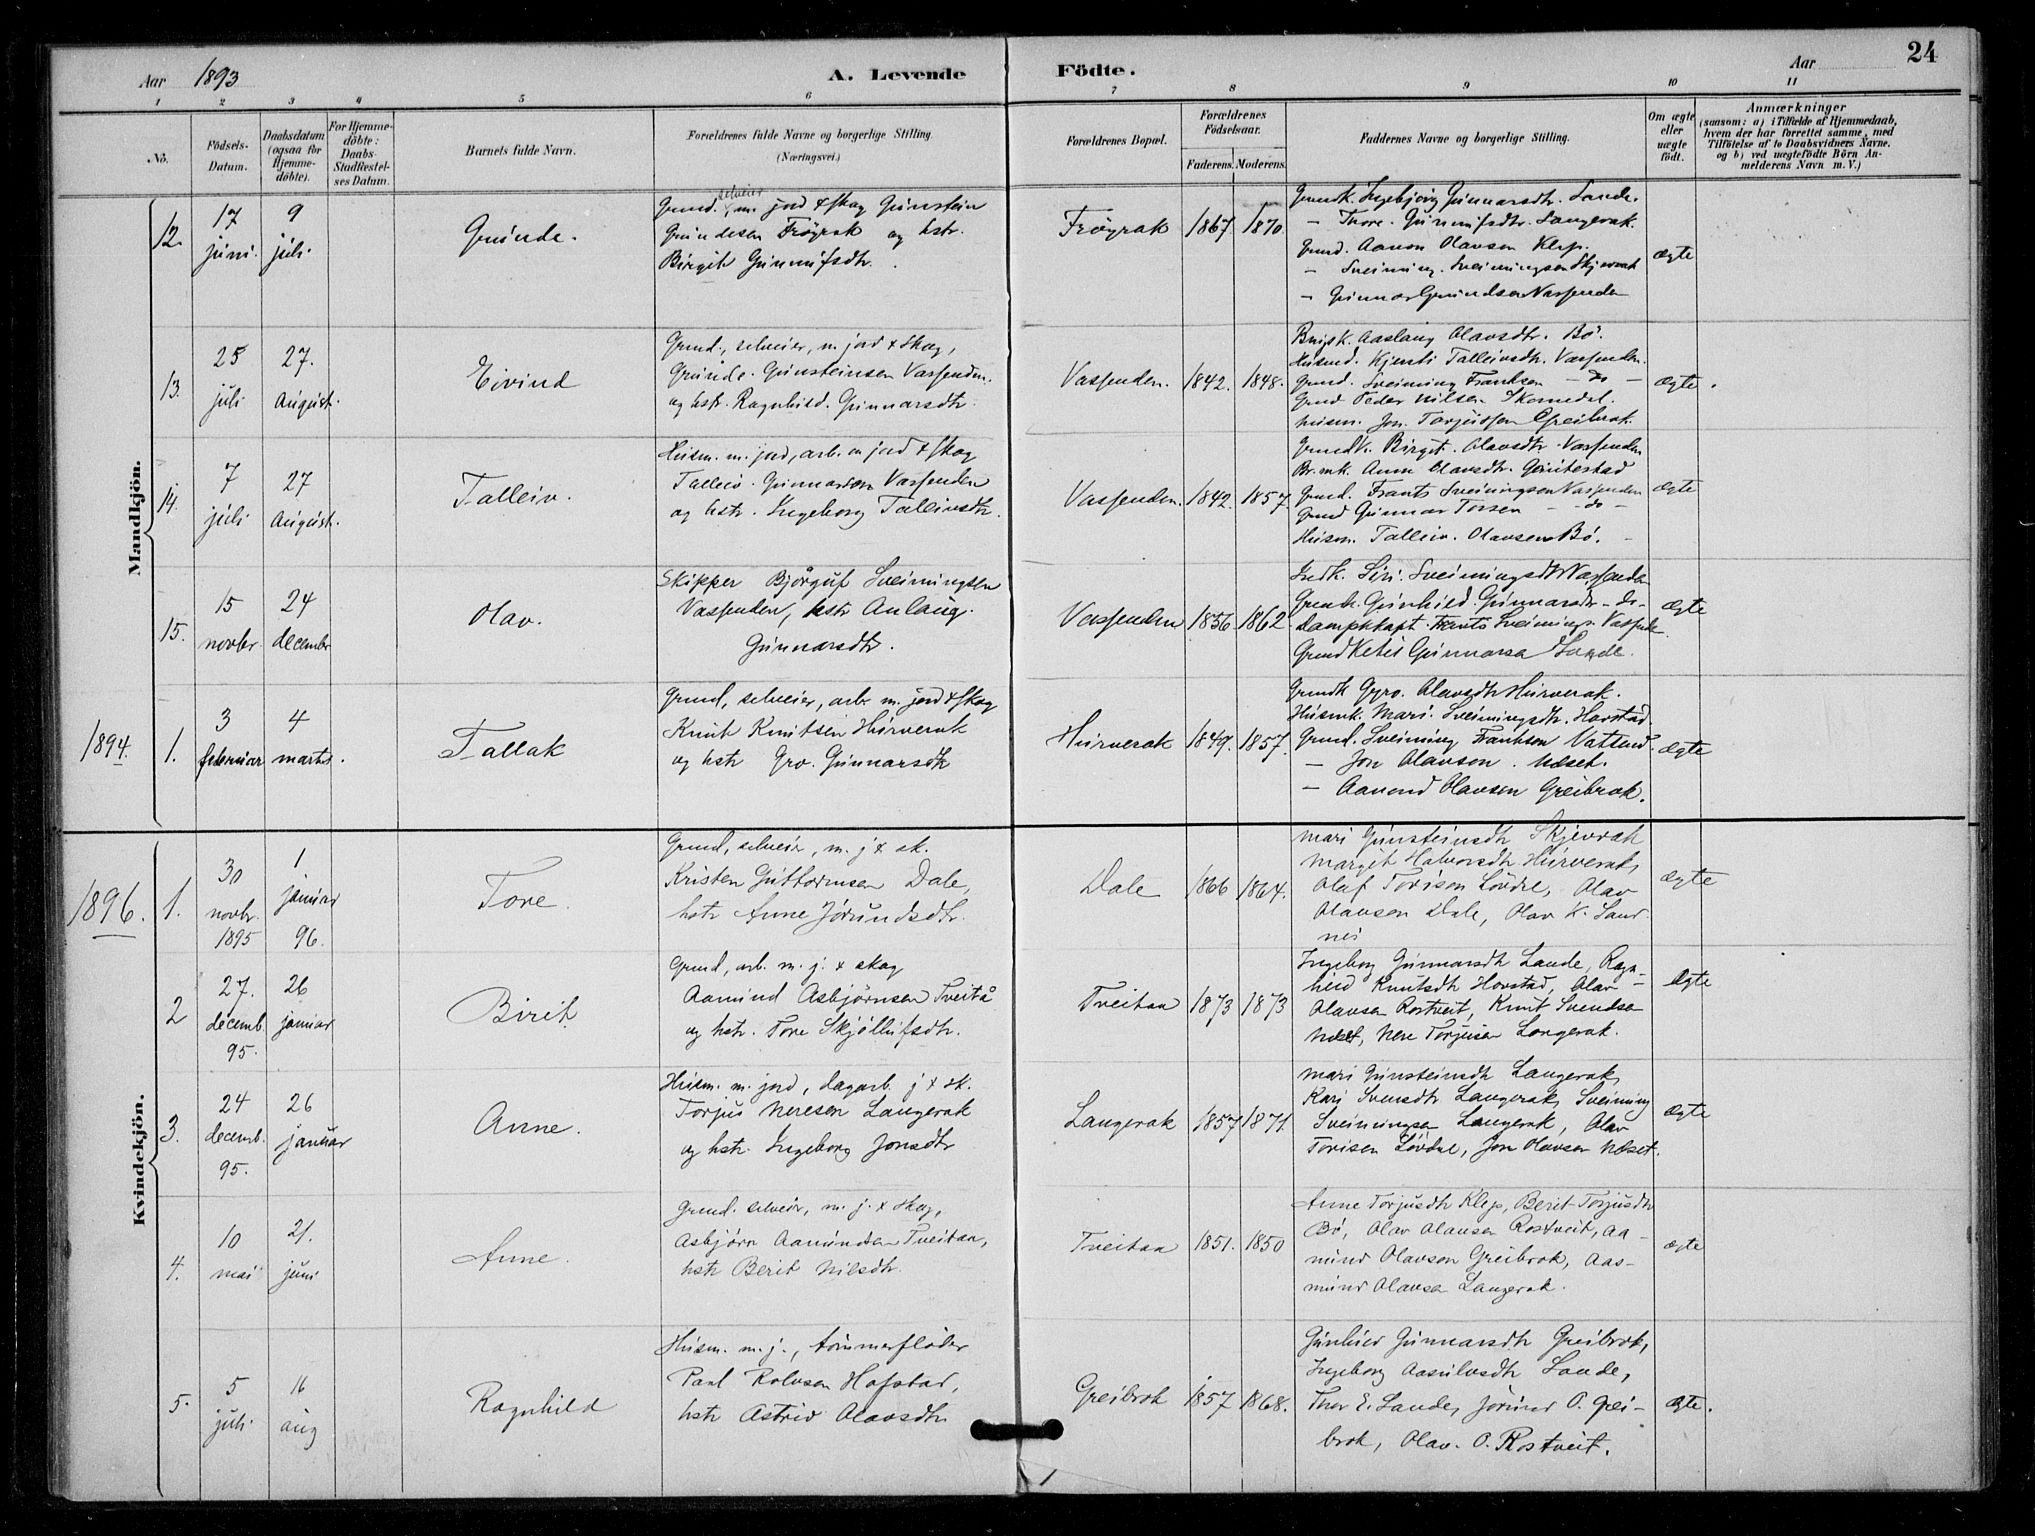 24
Aar 1893
A. Levende
Födte.
Aar
1 2 3 4 5 6 7 8 9 10 11
No.
Födsels-
Datum.
Daabsdatum
(ogsaa for
Hjemme-
döbte).
For Hjemme-
döbte:
Daabs-
Stadfæstel-
ses Datum.
Barnets fulde Navn.
Forældrenes fulde Navne og borgerlige Stilling.
(Næringsvei.)
Forældrenes Bopæl.
Forældrenes
Födselsaar.
Faderens. Moderens.
Faddernes Navne og borgerlige Stilling.
Om ægte
eller
uægte
födt.
Anmærkninger
(saasom: a) i Tilfælde af Hjemmedaab,
hvem der har forrettet samme, med
Tilföielse af to Daabsvidners Navne.
og b) ved uægtefödte Börn An-
melderens Navn m. V.)
Mandkjön.
12.
17
juni.
9
juli
Grunde.
selveier
Grund. m. jord & skog Gunstein
Grundesen Fröyrak og hstr.
Birgit Gunnulfsdtr.
Fröyrak
1867. 1870
Grundk. Ingebjörg Gunnarsdtr. Lande.
— Thore. Gunnulfsdtr. Langerak.
Grund. Aanon Olavsen Klep.
— Sveinung. Sveinungsen Skjevrak
— Gunnar Grundsen Vassenden
ægte
13.
25
juli
27.
August.
Eivind
Grund., selveier, m. jord & skog,
Grunde. Gunsteinsen Vassenden.
og hstr. Ragnhild. Gunnarsdtr.
Vassenden.
1842. 1848.
Brugsk. Aaslaug Olavsdtr. Bö.
Husmd. Kjersti Talleivsdtr. Vassenden.
Grund. Sveinung Frantsen — do —
Grund Peder Nilsen Skomedal.
husm. Jon. Torjussen Greibrok.
ægte.
14.
7
juli
27
August.
Talleiv.
Husm. m. jord, arb. m jord & skog
Talleiv. Gunnarson Vassenden
og hstr. Ingeborg Talleivsdtr.
Vassenden.
1842. 1857.
Grundk. Birgit. Olavsdtr. Vassenden
Br.mk. Anne Olavsdtr.
Grund. Frants Sveinungsen Vassenden
Grund Gunnar Torsen — do —
Husm. Talleiv. Olavsen Bö. —
ægte
15.
15
novbr
24
december
Olav.
Skipper Björguf Sveinungsen
Vassenden, hstr Anlaug.
Gunnarsdtr.
Vassenden
1856. 1862
Grdk. Siri. Sveinungsdtr Vassenden
Grundk. Gunhild. Gunnarsdtr — do —
Dampkkapt. Frants Sveinungs. Vassende
Grund Ketil Gunnarsen Lande.
ægte
1894.
1.
3
februar
4
marts.
Tallak
Grund, selveier, arb. m. jord & skog
Knut Knutsen Hurverak
og hstr Gro. Gunnarsdtr
Hurverak
1849. 1857.
Grundk Gyro. Olavsdtr Hurverak.
Husmk. Mari. Sveinungsdtr. Hovstad.
Grund. Sveinung Frantsen Vatsend.
— Jon Olavson. Næset.
— Aanond Olavsen Greibrok.
ægte
Kvindekjön.
1896.
1.
30
novbr.
1895
1
januar
96.
Tore.
Grund, selveier, m. j & sk.
Kristen Guttormsen Dale,
hstr Anne Jörundsdtr.
Dale
1866 1864.
Mari Gunsteinsdtr Skjevrak
Margit Halvorsdtr Hurverak,
Olaf Torison Lövdal, Olav
Olavsen Dale, Olav K. Sand-
nes
ægte
2
27.
decemb.
95.
26
januar
Birit.
Grund, arb. m. j. & skog
Aamund Asbjörnsen Tveitå
og hstr. Tore Skjöllufsdtr.
Tveitaa
1873 1873
Ingeborg Gunnarsdtr Lande, Ragn-
hild Knutsdtr Hovstad, Olav
Olavsen Rostveit, Knut Svendsen
Næset, Nere Torjusen Langerak.
ægte
3.
24
decemb.
95.
26
januar
Anne.
Husm. m. jord, dagarb. j & sk.
Torjus Neresen Langerak
og hstr. Ingeborg Jonsdtr
Langerak
1857 1871.
Mari Gunsteinsdtr Langerak,
Kari Svensdtr Langerak, Sveinung
Sveinungsen Langerak, Olav
Torisen Lövdal, Jon Olavsen Næset.
ægte
4.
10
mai
21.
juni
Anne.
Grund. selveier, m. j. & skog,
Asbjörn Aamundsen Tveitaa,
hstr Berit Nilsdtr.
Tveitaa
1851. 1850
Anne Torjusdtr Klep, Berit Torjusdtr
Bö, Olav Olavsen Rostveit, Aa-
mund Olavson Greibrok, Aas-
mund Olavsen Langerak.
ægte
5.
5
juli
16
aug
Ragnhild
Husm. m. j., tömmerflöder
Paal Rolvsen Hofstad,
hstr Astrid Olavsdtr.
Greibrok
1857 1868.
Gunhild Gunnarsdtr Greibrok,
Ingeborg Aasulvsdtr Lande,
Thor E. Lande, Jörund O. Grei-
brok, Olav. O. Rostveit.
ægte.